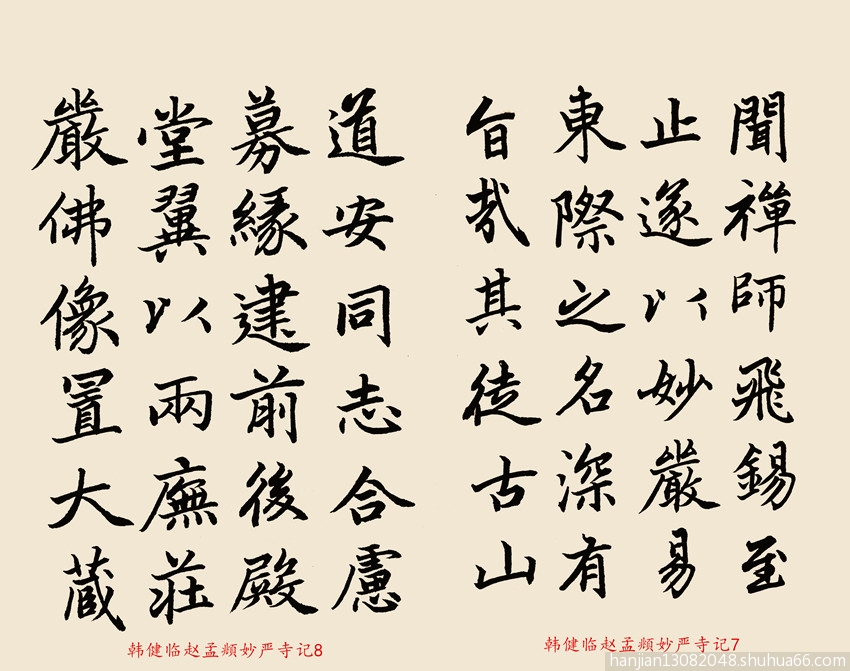 聞禪師飛錫至
止遂以妙嚴易
東際之名深有
旨哉其徒古山
道安同志合慮
募緣建前後殿
堂翼以兩廡莊
嚴佛像置大藏
韩健临赵孟頫妙严寺记7
韩健临赵孟頫妙严寺记8
hanjian13082048.shuhua66.com